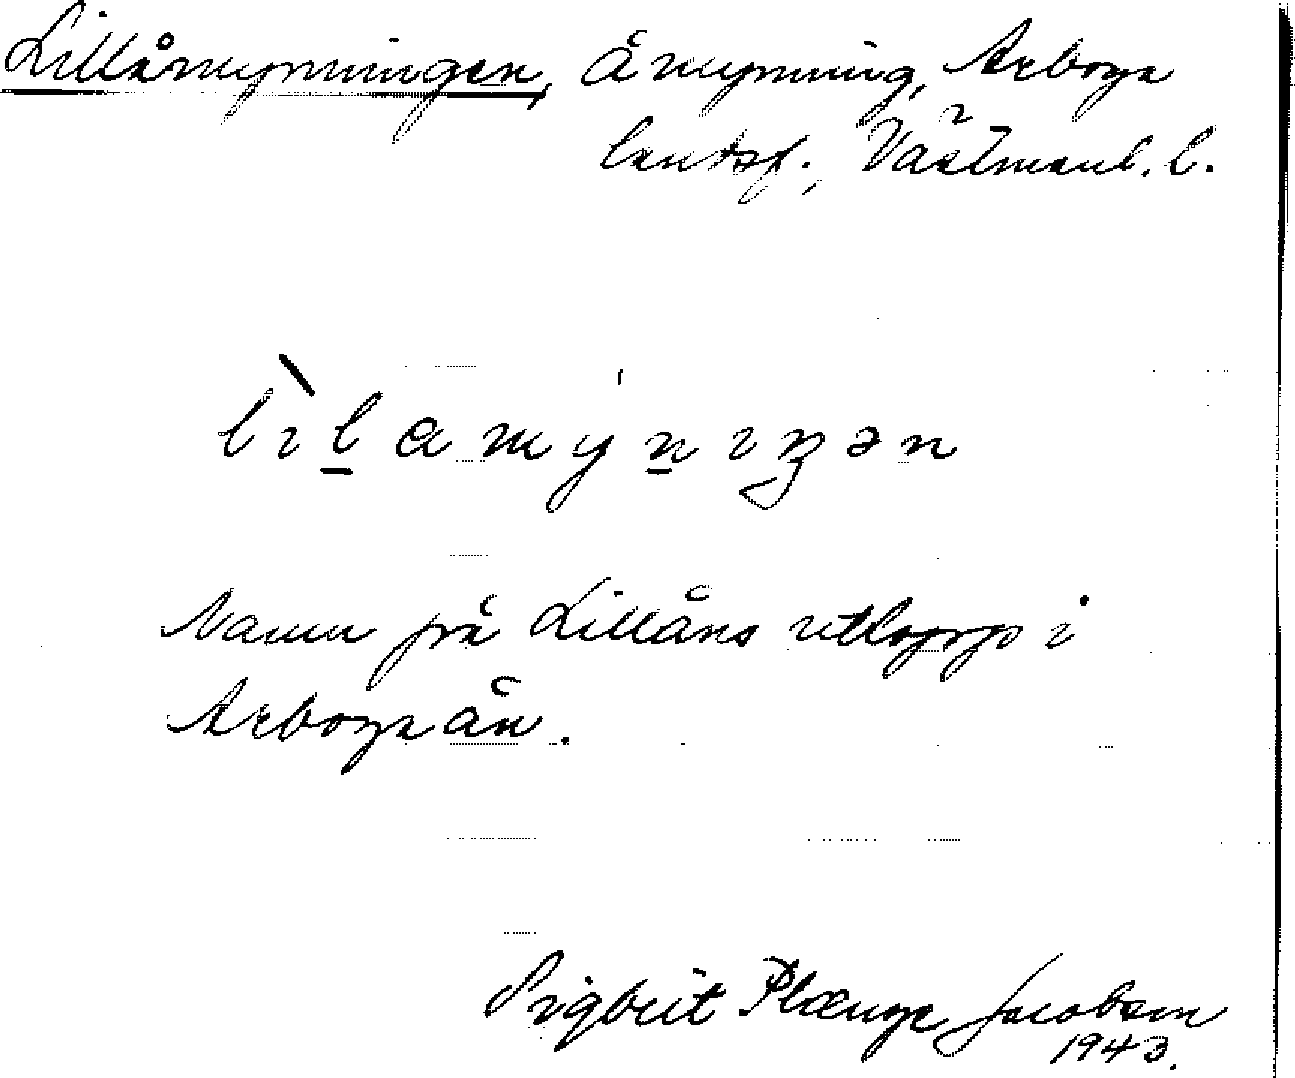 Lillåmynningen, Åmynning, Arboga
landsf., Västmanl. l.
Namn på Lillåns utlopp i
Arbogaån.
Sigbrit Plænge Jacobson
1943.